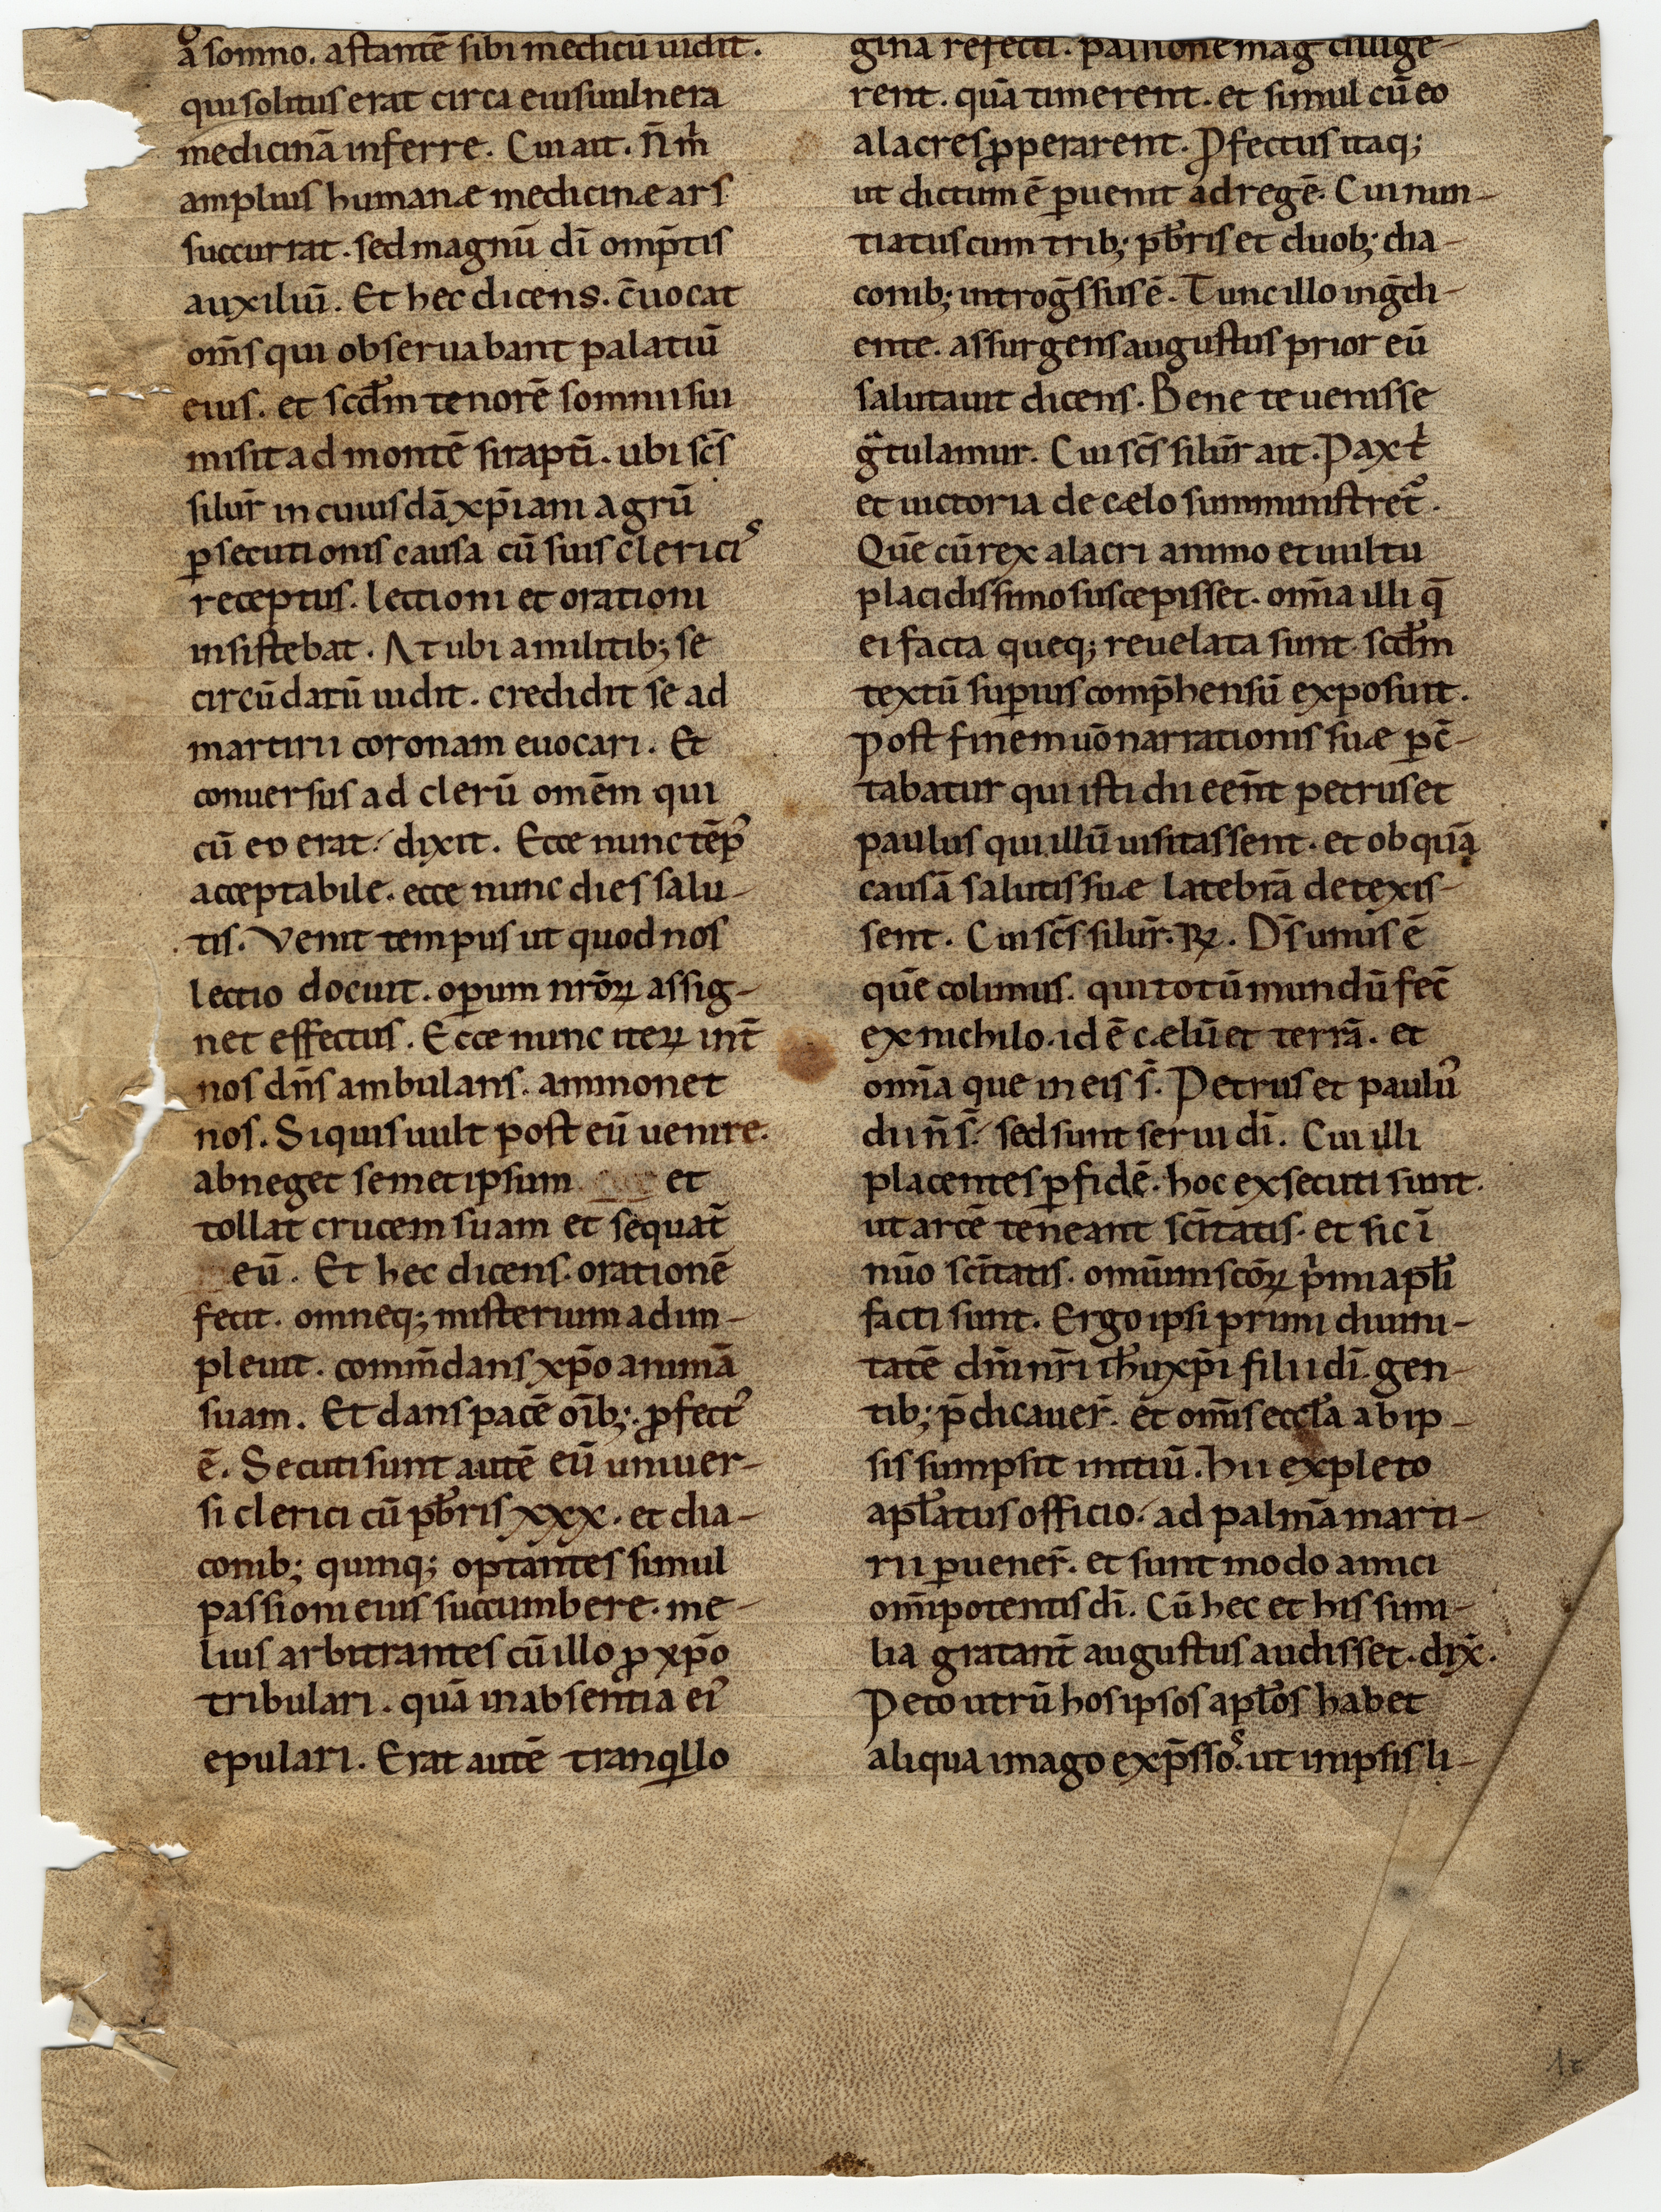 a somno. astantē sibi medicū uidit.
qui solitus erat circa eius uulnera
medicinā inferre. Cui ait. N̄ m̍
amplius humanæ medicinæ ars
succurrat. sed magnū dī omp̄tis
auxiliū. Et hec dicens. c̄uocat
om̄s qui obseruabant palatiū
eius. et scd̄m tenorē somnii sui
misit ad montē sirapti̅. ubi sc̄s
silur̄ in cuiusdā xp̄iani agrū
ꝑsecutionis causa cū suis clericis
receptus. lectioni et orationi
insistebat. At ubi a militib; se
circūdatū uidit. credidit se ad
martirii coronam euocari. Et
conuersus ad clerū omēm qui
cū eo erat dixit. Ecce nunc tēp᾽
acceptabile. ecce nunc dies salu-
tis. Venit tempus ut quod nos
lectio docuit. oꝑum nr̄oꝝ assig-
net effectus. Ecce nunc iteꝝ int̄
nos dn̄s ambulans. ammonet
nos. Si quis uult post eū uenire.
abneget semetipsum et
tollat crucem suam et sequat̄
eū. Et hec dicens. orationē
fecit. omneq; misterium adim-
pleuit. comm̄dans xp̄o animā
suam. Et dans pacē oīb;. ꝓfect᾽
ē. Secuti sunt autē eū uniuer-
si clerici cū pb̄ris xxx. et dia-
conib; quinq; optantes simul
passioni eius succumbere. me-
lius arbitrantes cū illo ꝓ xp̄o
tribulari. quā in absentia ei᾽
epulari. Erat autē tranqillo
gina refecti. passione mag᾽ dilige-
rent. quā timerent. et simul cū eo
alacres ꝓperarent. Ꝓfectus itaq;
ut dictum ē ꝑuenit ad regē. Cui nun-
tiatus cum trib; pb̄ris et duob; dia-
conib; introgs̄sus ē. Tunc illo ingd̄i-
ente. assurgens augustus prior eū
salutauit dicens. Bene te uenisse
gͣtulamur. Cui sc̄s silur̄ ait. Pax t̍
et uictoria de cælo sumministret᾽.
Quē cū rex alacri animo et uultu
placidissimo suscepisset. omīa illi q̄
ei facta queq; reuelata sunt scd̄m
textū suꝑius comp̄hensū exposuit.
Post finem uō narrationis suæ ꝑc̄-
tabatur qui isti dii een̄t petrus et
paulus qui illū uisitassent. et ob quā
causā salutis suæ latebrā detexis-
sent. Cui sc̄s silur̄. ꝶ. D̄s unus ē
quē colimus. qui totū mundū fec̄
ex nichilo. id ē cælū et terrā. et
omīa que in eis s̄. Petrus et paulus᾽
dii n̄ s̄. sed sunt serui dī. Cui illi
placentes ꝑ fidē. hoc exsecuti sunt.
ut arcē teneant scītatis. et sic ī
nūo scītatis. omīum sc̄oꝝ pimi apl̄i
facti sunt. Ergo ipsi primi diuini-
tatē dn̄i nr̄i ih̄u xp̄i filii dī. gen-
tib; p̄dicauer̄. et om̄is eccl̄a ab ip-
sis sumpsit initiū. Hii expleto
apl̄atus officio. ad palmā marti-
rii ꝑuener̄. et sunt modo amici
om̄ipotentis dī. Cū hec et his simi-
lia gratant̄ augustus audisset. dix̄.
Peto utrū hos ipsos apl̄os habet
aliqua imago exp̄ssos. ut in ipsis li-